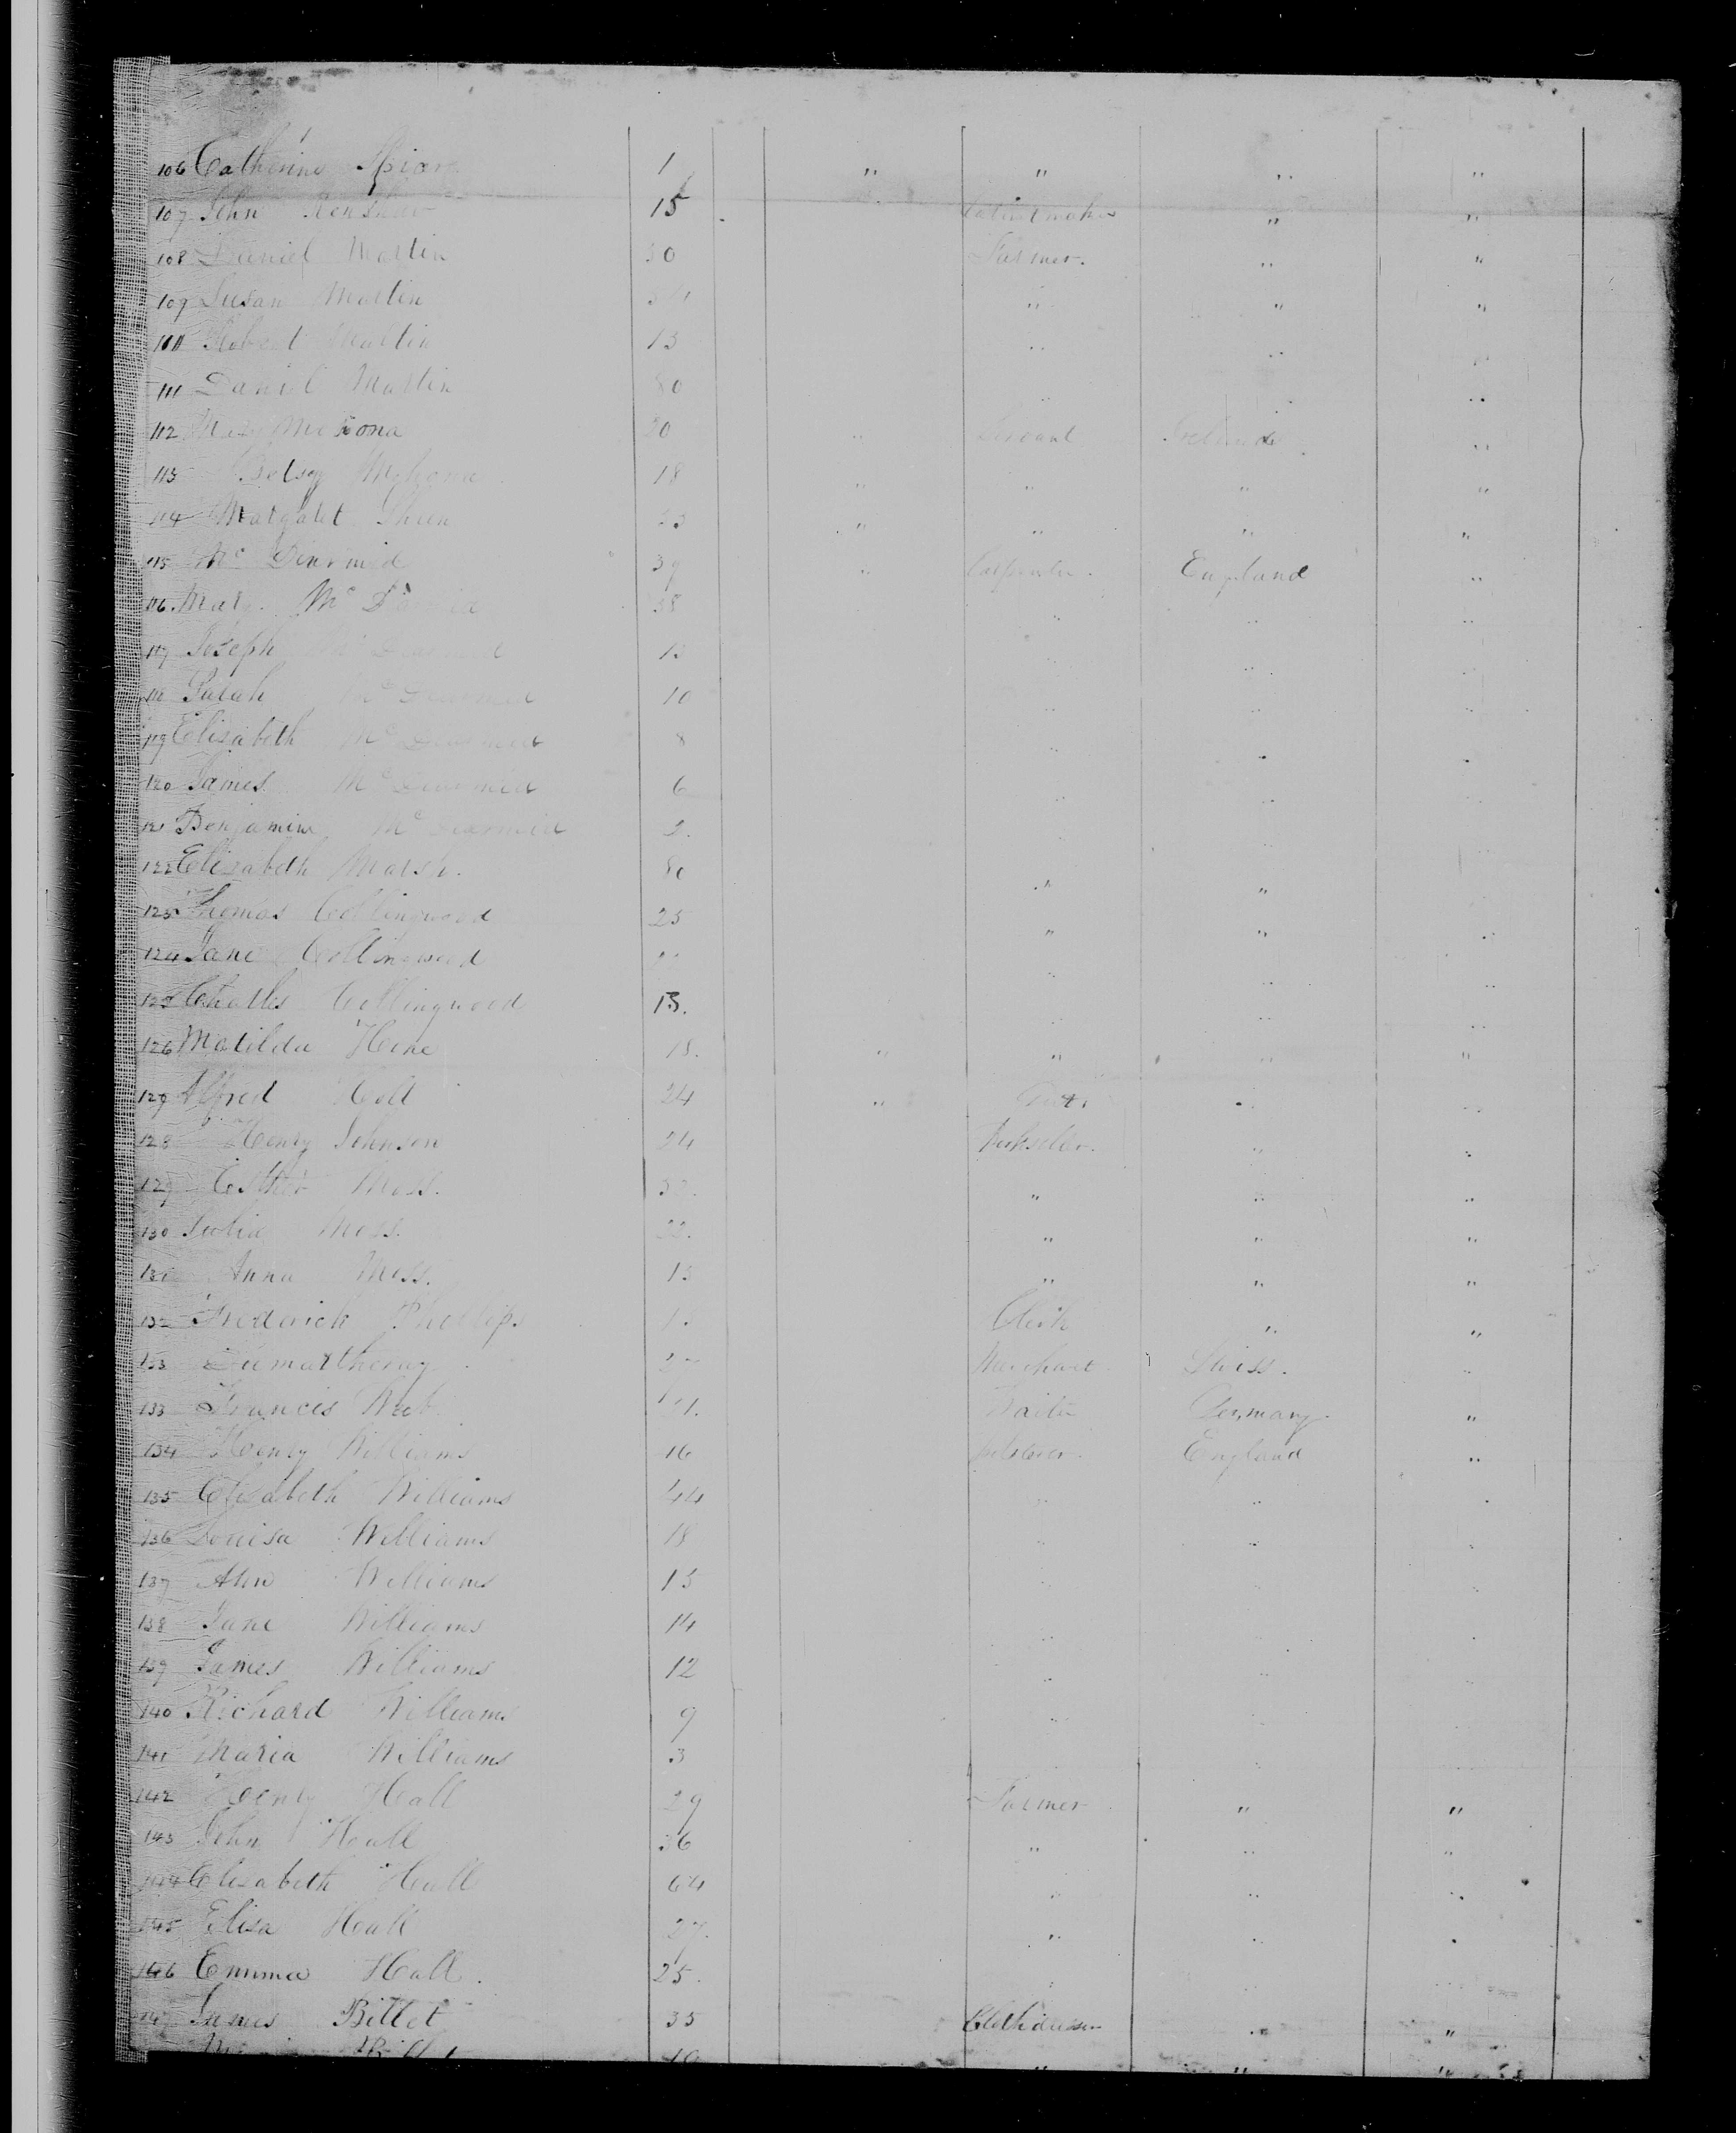 106 Catherine Spiers 1 " " " "
107 John Renshaw 15 Cabinetmaker " "
108 Daniel Martin 30 Farmer. " "
109 Susan Martin " " "
110 Robert Martin 13 " " "
111 Daniel Martin 80 " " "
112 Mary 20 " Servant Ireland "
113 Betsy 18 " " " "
114 Margaret 23 " " " "
115 Mc Diarmid 39 " Carpenter. England "
116. Mary. Mc Diarmid 38 " " "
117 Joseph Mc Diarmid 13 " "
118 Sarah Mc Diarmid 10 " " "
119 Elisabeth Mc Diarmid 8 " " "
120 James Mc Diarmid 6 " " "
121 Benjamin Mc Diarmid 2. " " "
122 Elizabeth Marsh. 80 " "
123 Thomas Collingwood 25 " " "
124 Jane Collingwood " " "
125 Charles Collingwood 13. " " "
126 Matilda 18. " " " "
127 Alfred Holt 24 " " "
128 Henry Johnson 24 " "
129 Esther Moss. " " "
130 Julia Moss. 22. " " "
131 Anna Moss. 13 " " "
132 Frederick Phillips Clerk " "
133 Dumartheray 27 Merchant Swiss. "
133 Francis 21. Waiter Germany. "
134 Henry Williams 16 England "
135 Elisabeth Williams 44 " " "
136 Louisa Williams 18 " " "
137 Ann Williams 15 " "
138 Jane Williams 14 " "
139 James Williams 12 " " "
140 Richard Williams 9 " " "
141 Maria Williams 3 " " "
142 Henry Hall 29 Farmer " "
143 John Hall 36 " " "
144 Elisabeth Hall 64 " " "
145 Elisa Hall 27. " " "
146 Emma Hall. 25. " "
147 James Billet 35 " "
Billet " " "